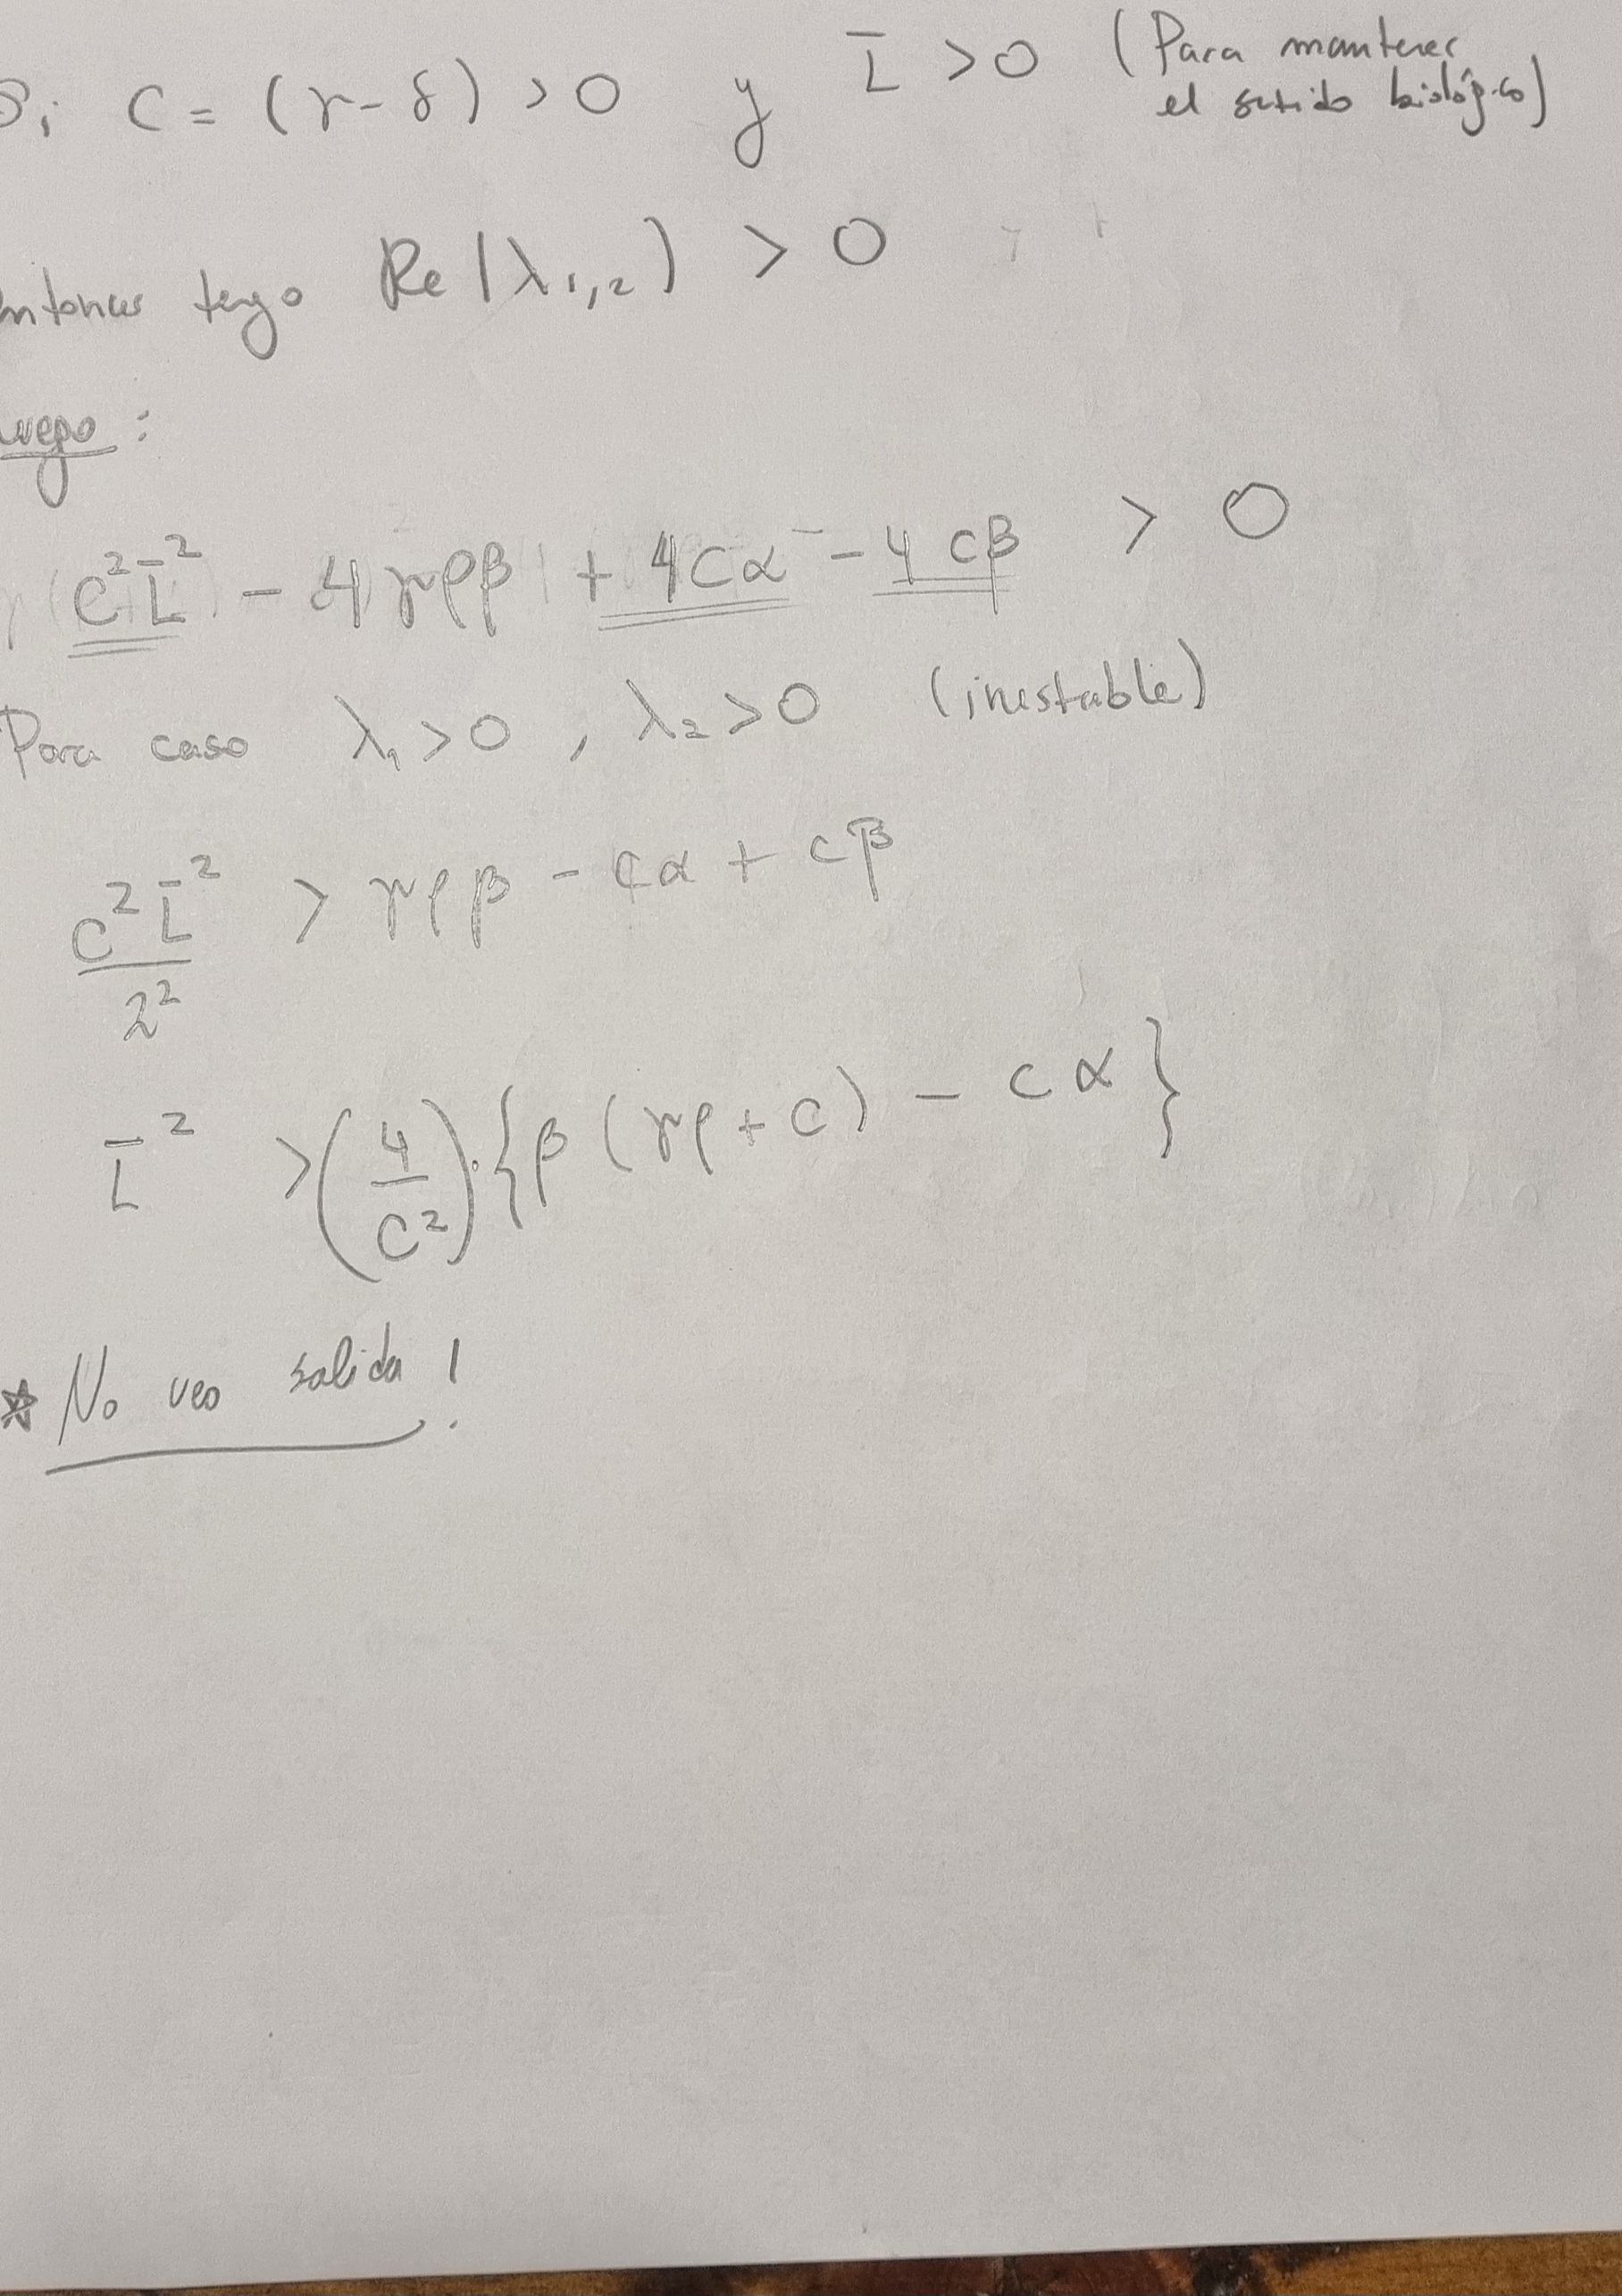 Si C = (γ - δ) > 0 y L̄ > 0 (Para mantener el sentido biológico)
entonces tengo Re(λ₁,₂) > 0
Luego:
C²L̄² - 4γρβ + 4Cα - 4Cβ > 0
Para caso λ₁ > 0, λ₂ > 0 (inestable)
C²L̄²/2² > γρβ - Cα + Cβ
L̄² > (4/C²)·{β(γρ + C) - Cα}
* No veo salida!